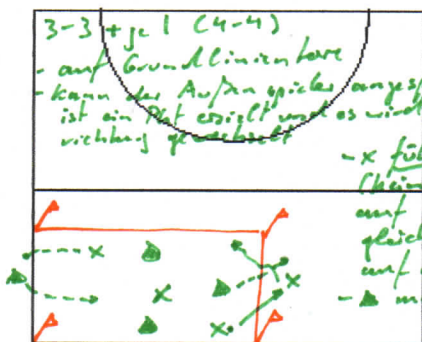 3-3 + je 1 (4-4)
- auf Grundlinientore
- kann der Außenspieler angesp
ist ein Pkt erzielt und es wird
richtung gewechselt
- x
auf
gleich
auf
- ▲ m